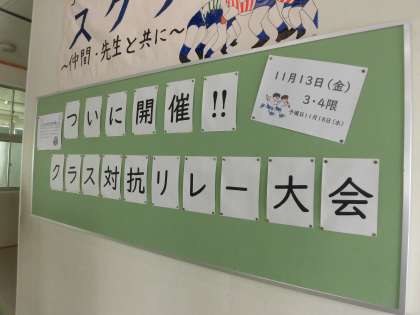 スク
～仲間・先生と共に～
ついに開催!!
11月13日(金)
3・4限
予備日11月18日(水)
クラス対抗リレー大会